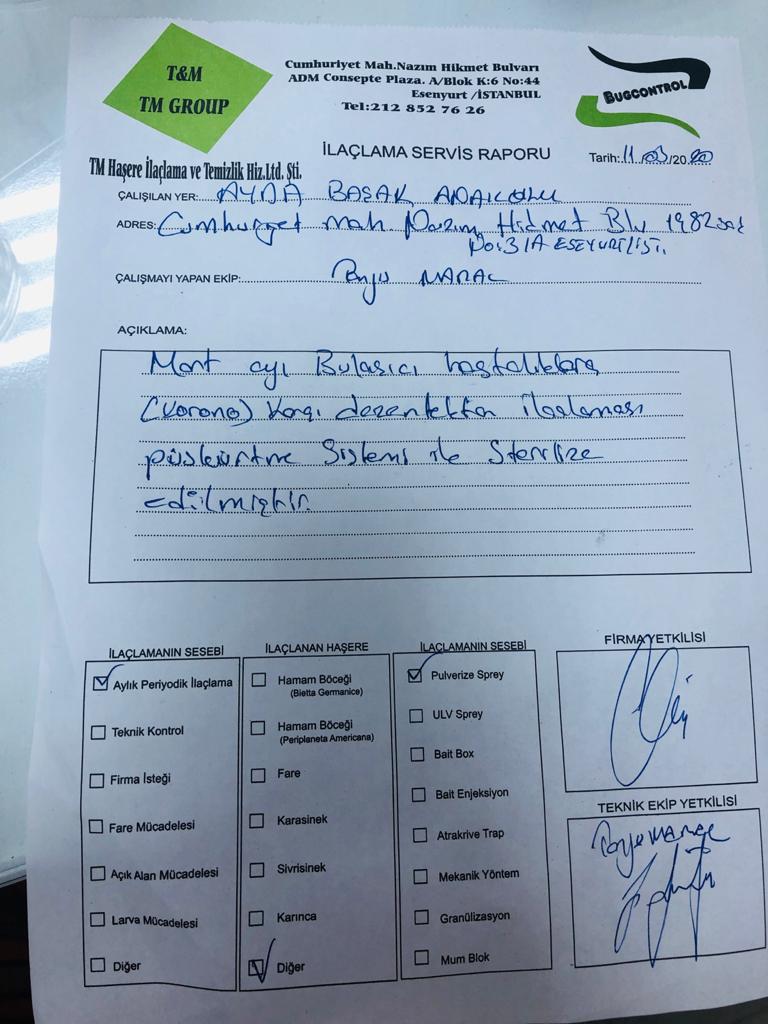 T&M
TM GROUP
Cumhuriyet Mah.Nazım Hikmet Bulvarı
ADM Consepte Plaza. A/Blok K:6 No:44
Esenyurt /İSTANBUL
Tel:212 852 76 26
BUGCONTROL
TM Haşere İlaçlama ve Temizlik Hiz.Ltd. Şti.
İLAÇLAMA SERVİS RAPORU
Tarih: 11.03/2020
ÇALIŞILAN YER: AYDA BAŞAK
ADRES: Cumhuryet mah. Nazım Hikmet Blv 1982 sok
No:31A ESEYURT/İST.
ÇALIŞMAYI YAPAN EKİP:
AÇIKLAMA:
Mart ayı Bulaşıcı hastalıklara
(Korona) Karşı dezenfektan ilaçlaması
püskürtme Sistemi ile Sterilize
edilmiştir.
İLAÇLAMANIN SESEBİ
Aylık Periyodik İlaçlama
Teknik Kontrol
Firma İsteği
Fare Mücadelesi
Açık Alan Mücadelesi
Larva Mücadelesi
Diğer
İLAÇLANAN HAŞERE
Hamam Böceği
(Bietta Germanice)
Hamam Böceği
(Periplaneta Americana)
Fare
Karasinek
Sivrisinek
Karınca
Diğer
İLAÇLAMANIN SESEBİ
Pulverize Sprey
ULV Sprey
Bait Box
Bait Enjeksiyon
Atrakrive Trap
Mekanik Yöntem
Granülizasyon
Mum Blok
FİRMA YETKİLİSİ
TEKNİK EKİP YETKİLİSİ